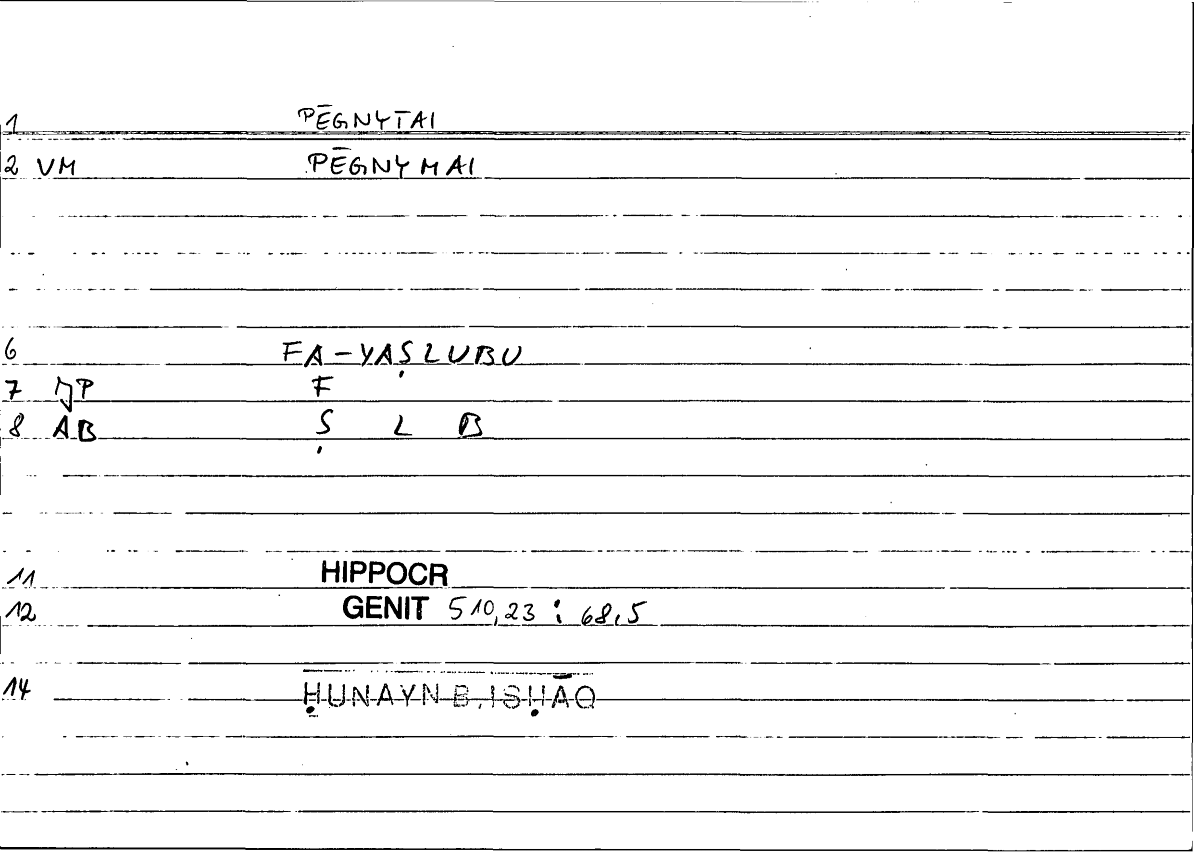 1 PĒGNYTAI
2 VM PĒGNYMAI
6 FA-YAṢLUBU
7 JP F
8 AB Ṣ L B
11 HIPPOCR
12 GENIT 510,23 : 68,5
14 ḤUNAYN B. ISḤĀQ